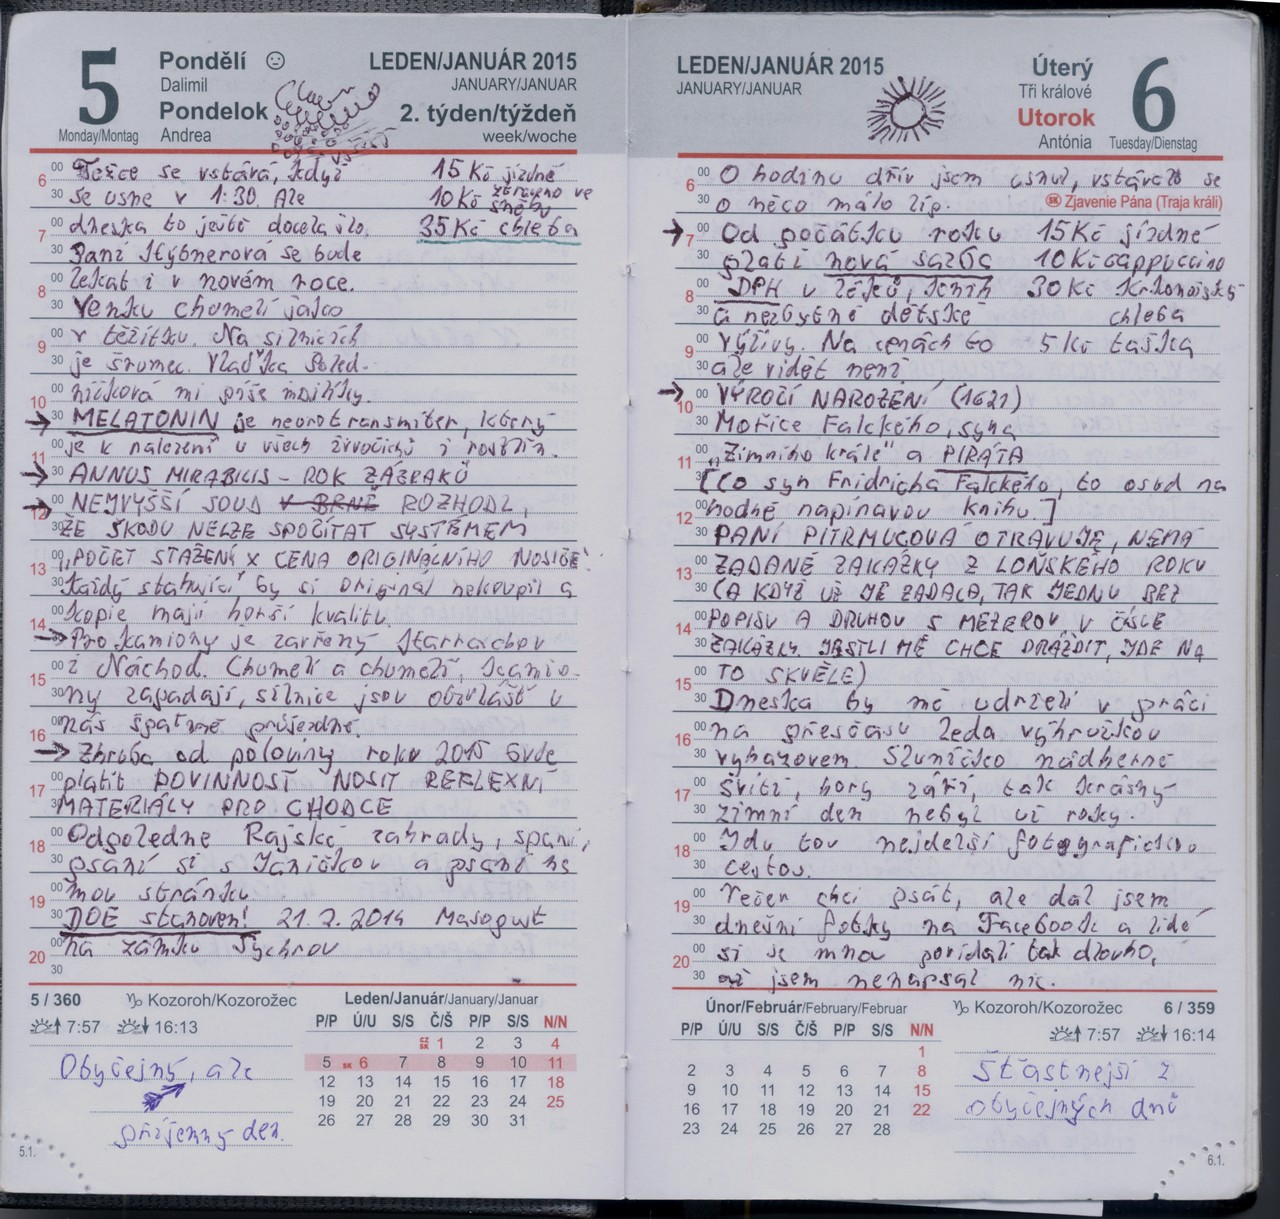 5
Pondělí
Dalimil
Pondelok
Andrea
Monday/Montag
LEDEN/JANUÁR 2015
JANUARY/JANUAR
2. týden/týždeň
week/woche
6 00 Těžce se vstává, když 15 Kč jízdné
30 se usne v 1:30. Ale 10 Kč ztraceno ve sněhu
7 00 dneska to ještě docela šlo. 35 Kč chleba
30 Paní Hýbnerová se bude
8 00 lekat i v novém roce.
30 Venku chumelí jako
9 00 v těžítku. Na silnicích
30 je šrumec. Vlaďka Pohled-
10 00 níčková mi píše mailíky.
30 MELATONIN je neurotransmiter, který
11 00 je k nalezení u všech živočichů i rostlin.
30 ANNUS MIRABILIS - ROK ZÁZRAKŮ
12 00 NEJVYŠŠÍ SOUD V BRNĚ ROZHODL,
30 ŽE ŠKODU NELZE SPOČÍTAT SYSTÉMEM
13 00 „POČET STAŽENÍ X CENA ORIGINÁLNÍHO NOSIČE“
30 Každý stahující by si originál nekoupil a
14 00 kopie mají horší kvalitu.
30 Pro kamiony je zavřený Harrachov
15 00 i Náchod. Chumelí a chumelí, kamio-
30 ny zapadají, silnice jsou obzvlášť u
16 00 nás špatně průjezdné.
30 Zhruba od poloviny roku 2015 bude
17 00 platit POVINNOST NOSIT REFLEXNÍ
30 MATERIÁLY PRO CHODCE
18 00 Odpoledne Rajské zahrady, spaní,
30 psaní si s Janičkou a psaní na
19 00 mou stránku.
30 DOE stanoven! 21.2.2014 Masopust
20 00 na zámku Sychrov
30
5 / 360
Kozoroh/Kozorožec
7:57 16:13
Obyčejný, ale
příjemný den.
Leden/Január/January/Januar
P/P Ú/U S/S Č/Š P/P S/S N/N
CZ SK 1 2 3 4
5 SK 6 7 8 9 10 11
12 13 14 15 16 17 18
19 20 21 22 23 24 25
26 27 28 29 30 31
5.1.
LEDEN/JANUÁR 2015
JANUARY/JANUAR
Úterý
Tři králové
Utorok
Antónia
6
Tuesday/Dienstag
6 00 O hodinu dřív jsem usnul, vstávalo se
SK Zjavenie Pána (Traja králi)
30 o něco málo líp.
7 00 Od počátku roku 15 Kč jízdné
30 platí nová sazba 10 Kč cappuccino
8 00 DPH u léků, knih 30 Kč Krkonošský
30 a nezbytné dětské chleba
9 00 výživy. Na cenách to 5 Kč taška
30 ale vidět není
10 00 VÝROČÍ NAROZENÍ (1621)
30 Mořice Falckého, syna
11 00 „Zimního krále“ a PIRÁTA
30 [Co syn Fridricha Falckého, to osud na
12 00 hodně napínavou knihu.]
30 PANÍ PITRMUCOVÁ OTRAVUJE, NEMÁ
13 00 ZADANÉ ZAKÁZKY Z LOŇSKÉHO ROKU
30 (A KDYŽ UŽ JE ZADALA, TAK JEDNU BEZ
14 00 POPISU A DRUHOU S MEZEROU V ČÍSLE
30 ZAKÁZKY. JESTLI MĚ CHCE DRÁŽDIT, JDE NA
15 00 TO SKVĚLE)
30 Dneska by mě udrželi v práci
16 00 na přesčasu leda výhružkou
30 vyhazovem. Sluníčko nádherně
17 00 svítí, hory září, tak krásný
30 zimní den nebyl už roky.
18 00 Jdu tou nejdelší fotografickou
30 cestou.
19 00 Večer chci psát, ale dal jsem
30 dnešní fotky na Facebook a lidé
20 00 si se mnou povídali tak dlouho,
30 až jsem nenapsal nic.
Únor/Február/February/Februar
P/P Ú/U S/S Č/Š P/P S/S N/N
1
2 3 4 5 6 7 8
9 10 11 12 13 14 15
16 17 18 19 20 21 22
23 24 25 26 27 28
Kozoroh/Kozorožec
6 / 359
7:57 16:14
Šťastnejší z
obyčejných dnů
6.1.